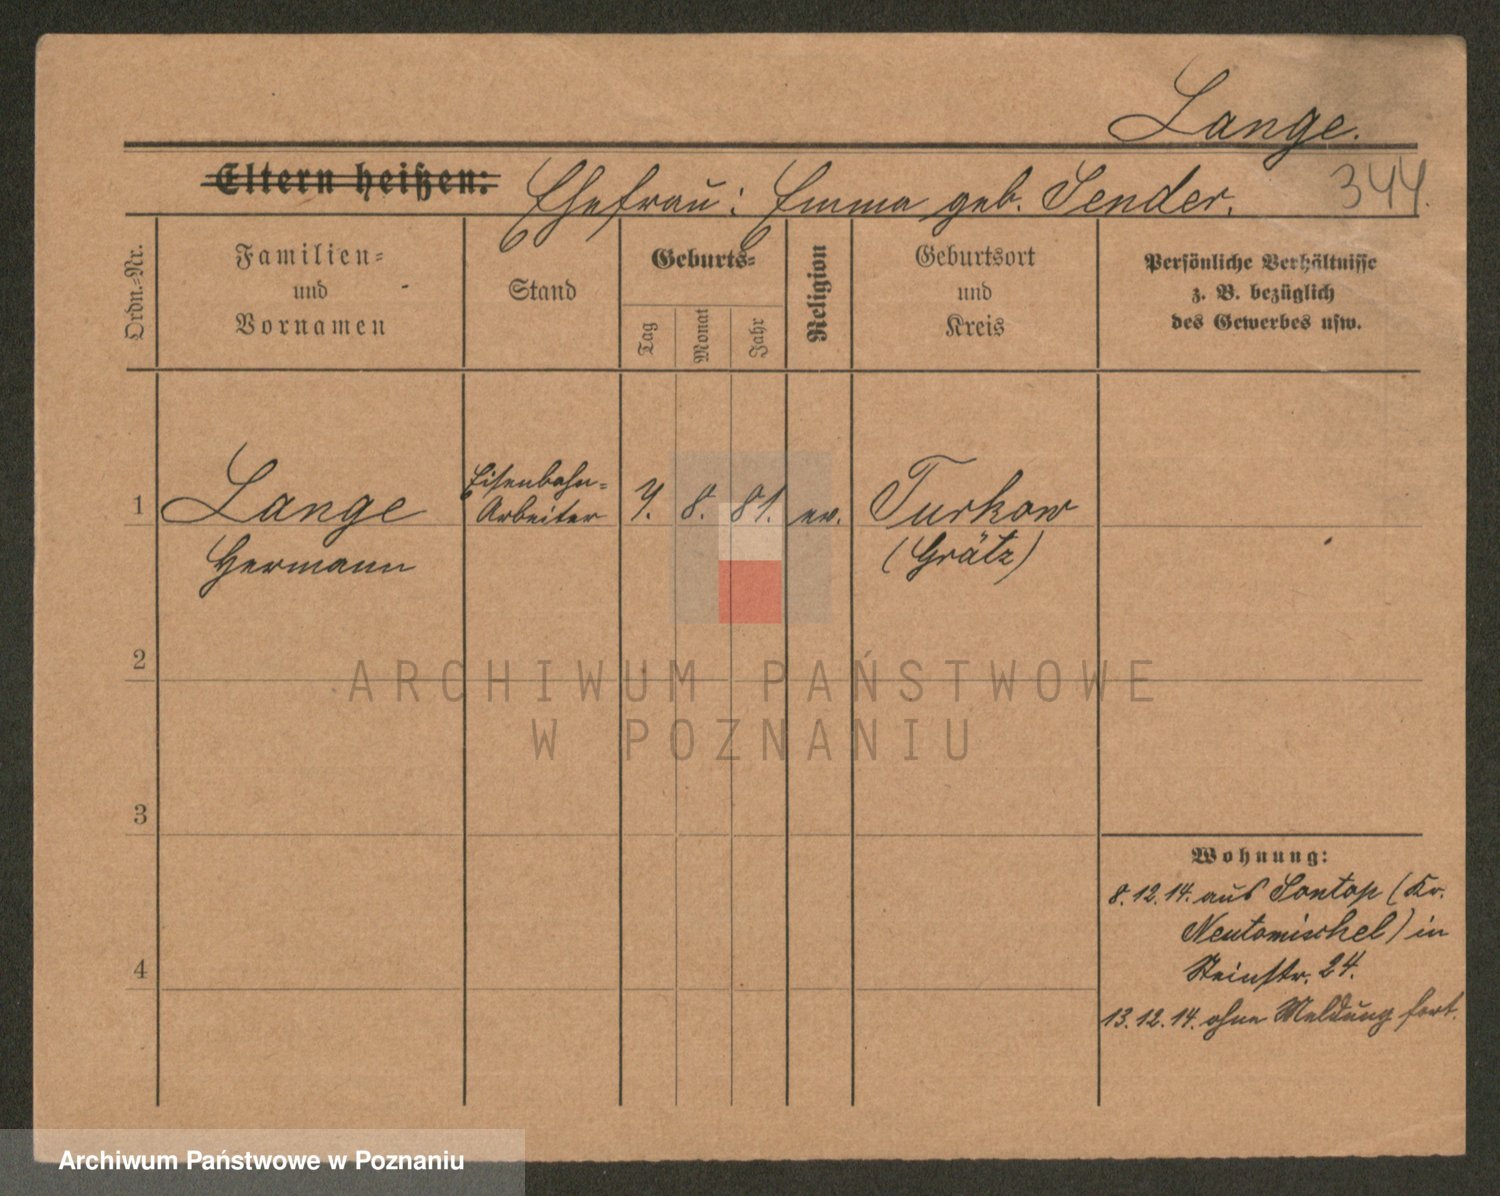 Lange.
Eltern heißen: Ehefrau: Emma geb. Sender. 344.
Ordn.-Nr.
Familien-
und
Vornamen
Stand
Geburts-
Tag
Monat
Jahr
Religion
Geburtsort
und
Kreis
Persönliche Verhältnisse
z. B. bezüglich
des Gewerbes usw.
1 Lange Eisenbahn-Arbeiter 7. 8. 81. ev. Turkow
Hermann (Grätz)
2
3
4
Wohnung:
8.12.14. aus Sontop (Kr.
Neutomischel) in
Steinstr. 24.
13.12.14. ohne Meldung fort.
ARCHIWUM PAŃSTWOWE
W POZNANIU
Archiwum Państwowe w Poznaniu